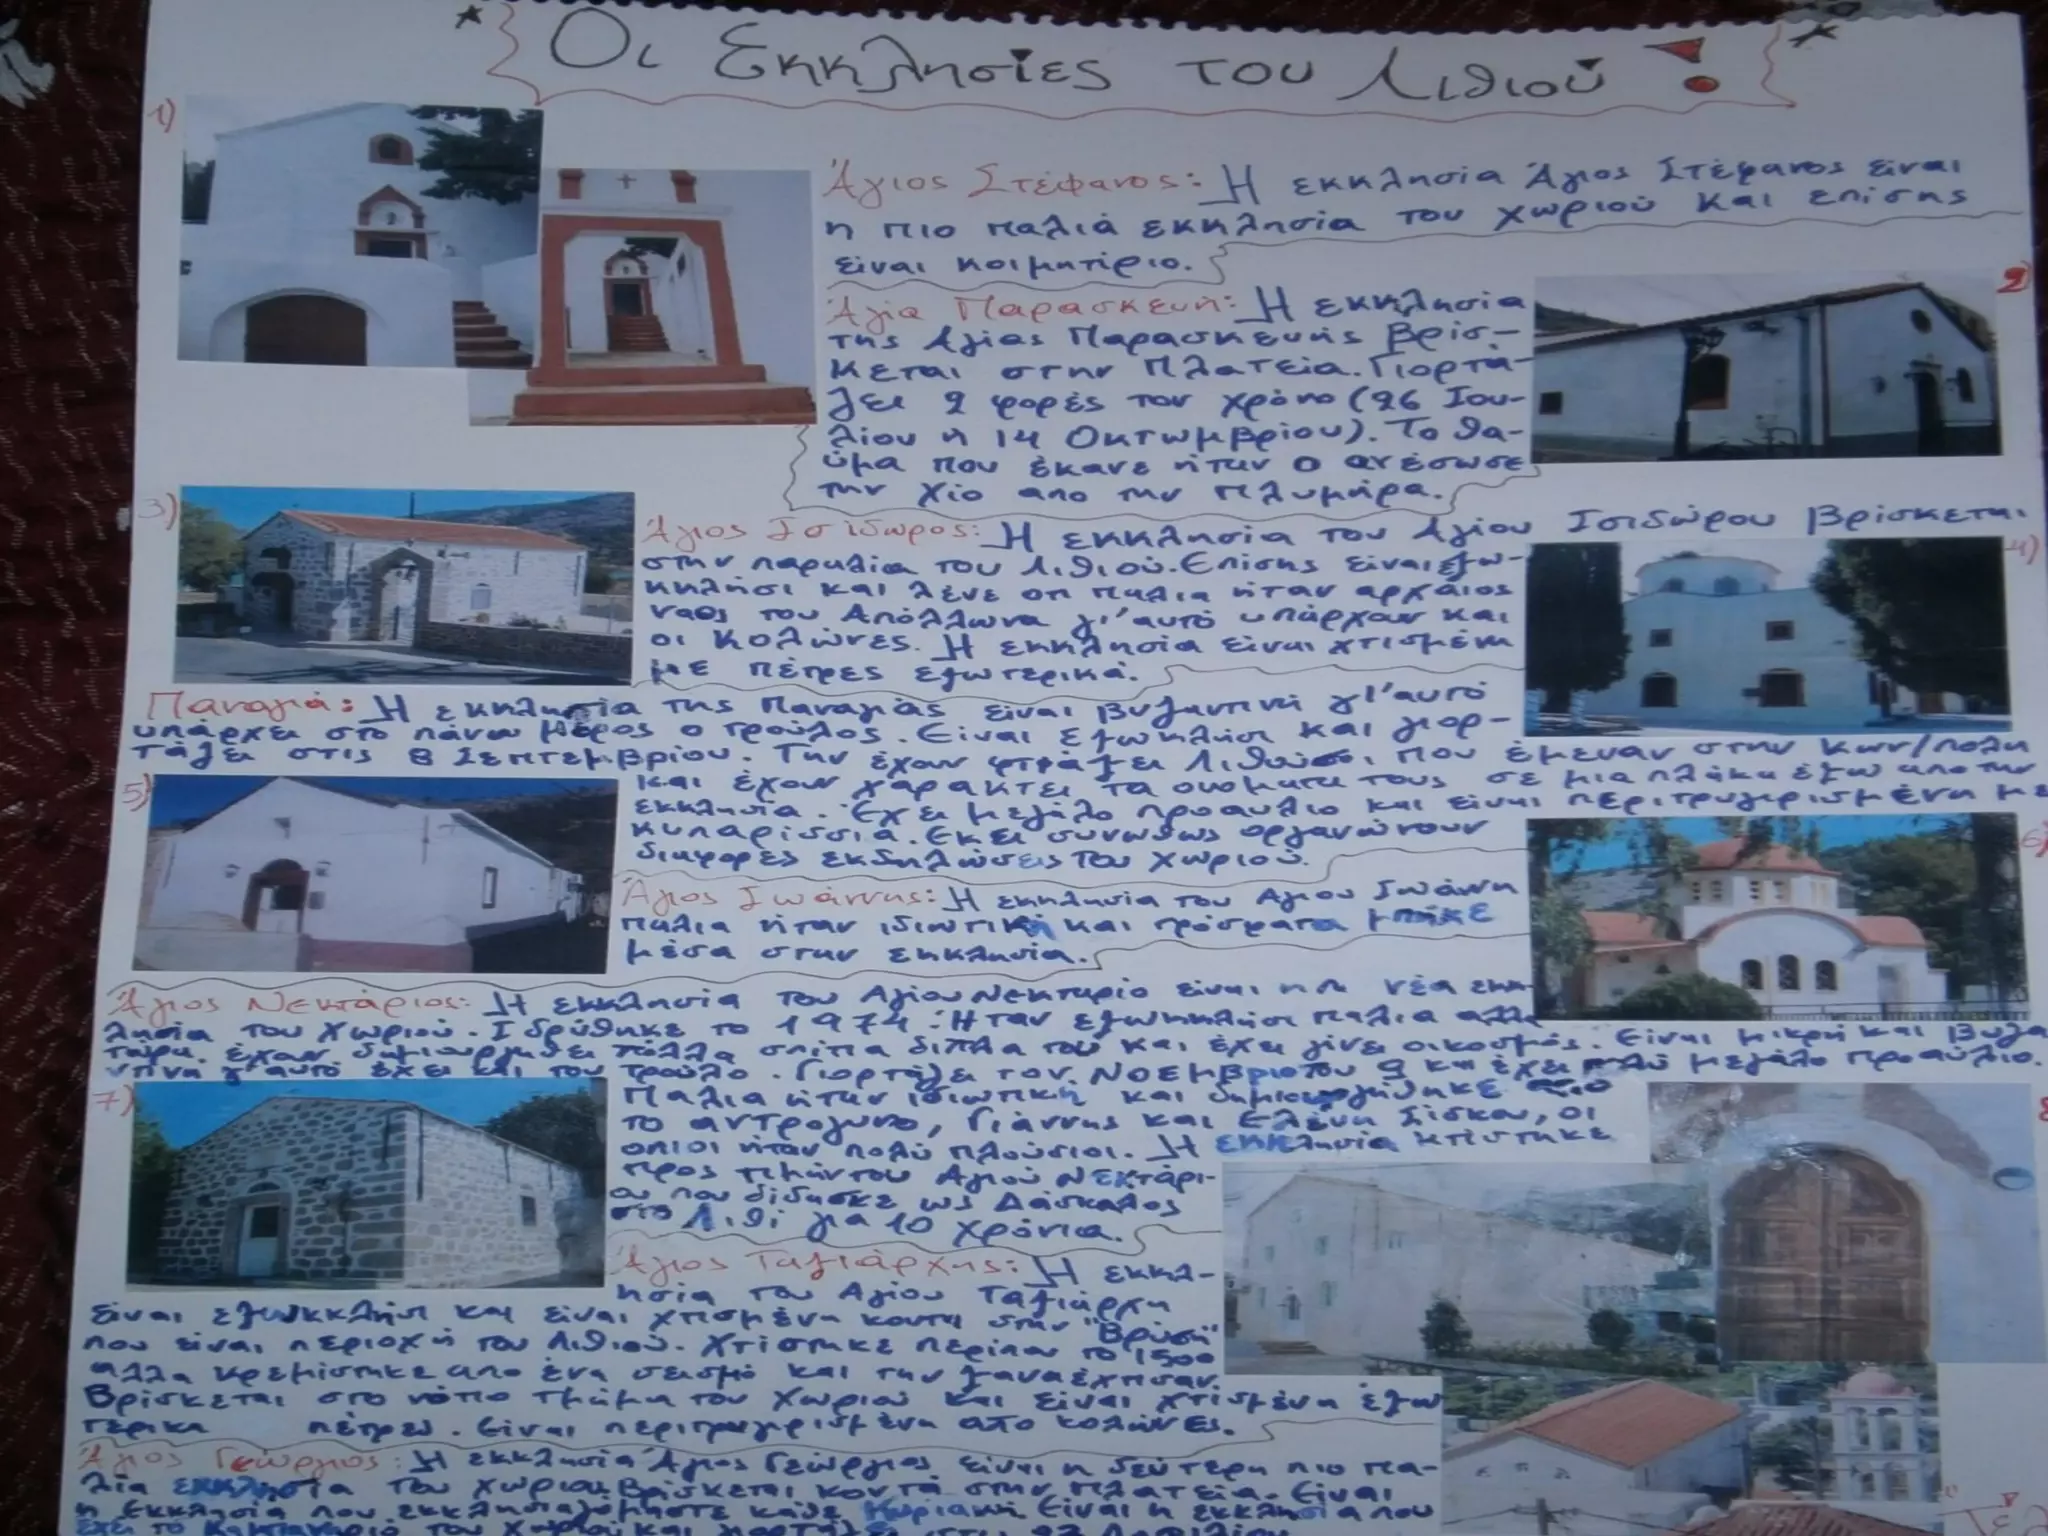 Οι Εκκλησίες του Λιθιού !
1)
Άγιος Στέφανος: Η εκκλησία Άγιος Στέφανος είναι
η πιο παλιά εκκλησία του χωριού και επίσης
είναι κοιμητίριο.
2
Αγία Παρασκευή: Η εκκλησία
της Αγίας Παρασκευής βρίσ-
κεται στην πλατεία. Γιορτά-
ζει 2 φορές τον χρόνο (26 Ιου-
λίου η 14 Οκτωμβρίου). Το θα-
ύμα που έκανε ήταν ο ανέσωσε
την Χίο απο την πλυμήρα.
3)
Άγιος Ισίδωρος: Η εκκλησία του Αγίου Ισιδώρου βρίσκεται
στην παραλία του Λιθιού. Επίσης είναι εξω-
κκλήσι και λένε οτι παλια ήταν αρχάιος
ναος του Απόλλωνα γι'αυτό υπάρχουν και
οι κολώνες. Η εκκλησία είναι χτισμένη
με πέτρες εξωτερικά.
4)
Παναγιά: Η εκκλησία της Παναγιάς είναι βυζαντινή γι'αυτό
υπάρχει στο πάνω μέρος ο τρούλος. Είναι εξωκλήσι και γιορ-
τάζει στις 8 Σεπτεμβρίου. Την έχουν φτιάξει Λιθούσοι που έμεναν στην Κων/πολη
και έχουν χαρακτεί τα ονοματα τους σε μια πλάκα έξω απο την
εκκλησία. Έχει μεγάλο προαυλιο και είναι περιτρυγιρισμένη με
κυπαρίσσια. Εκει συνωθως οργανώνουν
διαφορες εκδηλώσεις του χωριού.
5)
Άγιος Ιωάννης: Η εκκλησία του Αγιου Ιωάννη
παλια ήταν ιδιωτική και πρόσφατα μπήκε
μέσα στην εκκλησία.
6)
Άγιος Νεκτάριος: Η εκκλησία του Αγίου Νεκταριο είναι η νέα εκκ-
λησία του χωριού. Ιδρύθηκε το 1974. Ήταν εξωκκλήσι παλια αλλα
τώρα έχουν δημιουργηθει πολλα σπίτια διπλα του και έχει γίνει οικοσμός. Είναι μικρή και βυζα
ντινή γι'αυτό έχει και τον τρούλο. Γιορτάζει τον Νοεμβριο του 9 και έχει πολύ μεγάλο προαύλιο.
Παλια ήταν ιδιωτική και δημιουργήθηκε απο
το αντρογυνο, Γιάννης και Ελένη Σίσκου, οι
οπιοι ήταν πολύ πλούσιοι. Η εκκλησία κτίστηκε
προς τιμήν του Αγιού Νεκτάρι-
ου που δίδασκε ως δάσκαλος
στο Λιθί για 10 χρόνια.
7)
Άγιος Ταξιάρχης: Η εκκλ-
ησία του Αγίου Ταξιάρχη
είναι εξωκκλήσι και είναι χτισμένη κοντα στην "Βρύση"
που είναι περιοχή του Λιθιού. Χτίστηκε περίπου το 1500
αλλα κρεμίστηκε απο ένα σεισμό και την ξαναέχτισαν.
Βρίσκεται στο νότιο τμήμα του χωριού και είναι χτισμένη έξω
τερικα πέτρες. Είναι περιτρυγιρισμένη απο κολώνες.
8
Άγιος Γεώργιος: Η εκκλησία Άγιος Γεώργιος είναι η δεύτερη πιο πα-
λία εκκλησία του χωριου. Βρίσκεται κοντά στην πλατεία. Είναι
η εκκλησία που εκκλησιαζόμαστε κάθε Κυριακή. Είναι η εκκλησια που
έχει το Καμπαναριό του χωριού και γιορτάζει στις 23 Απριλίου